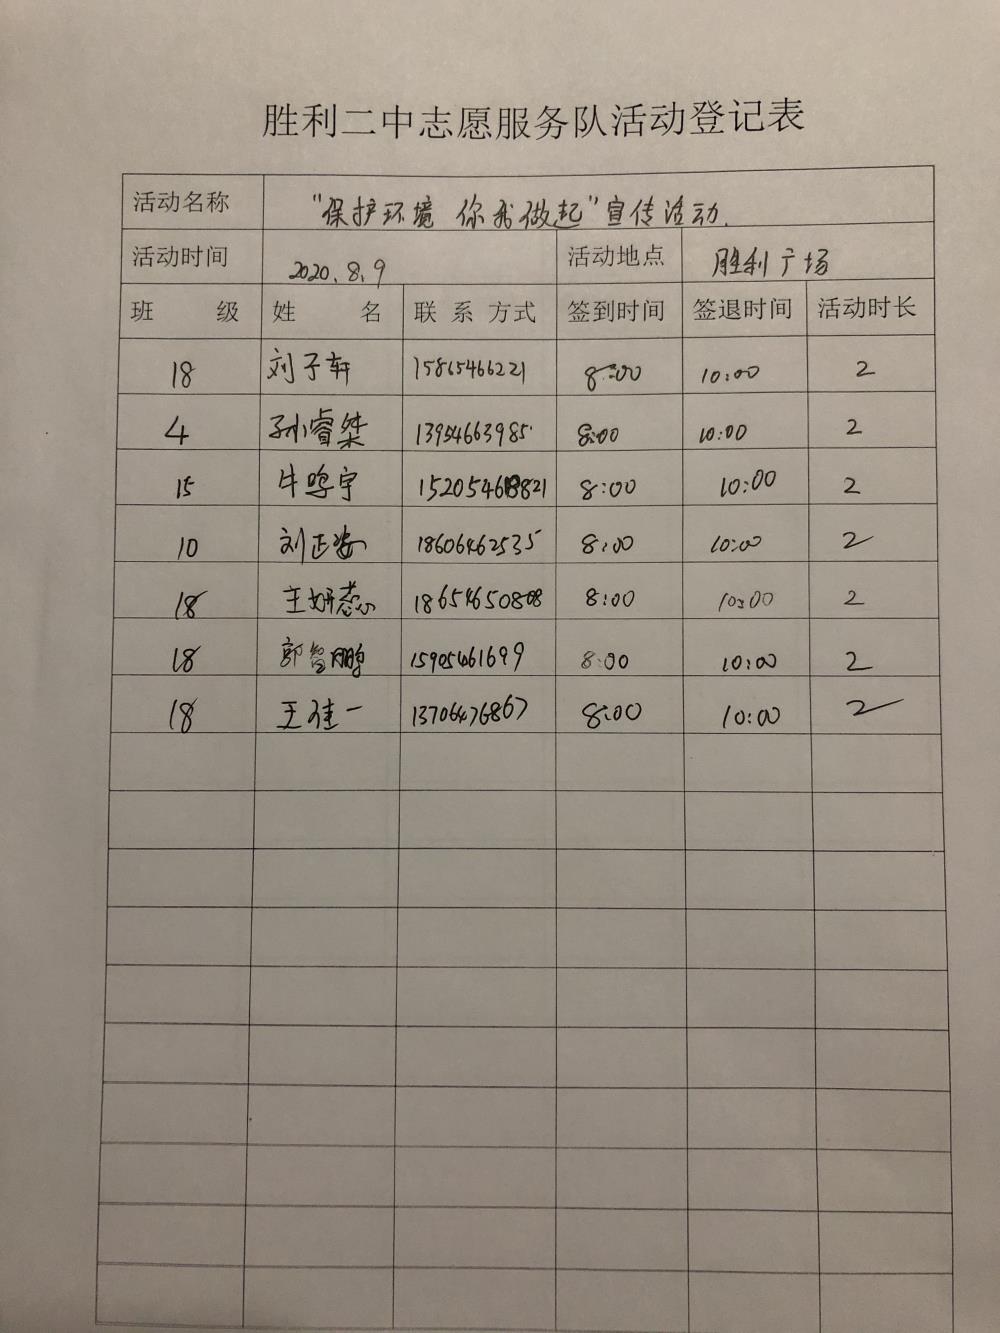 胜利二中志愿服务队活动登记表
活动名称 "保护环境 你我做起"宣传活动.
活动时间 2020.8.9 活动地点 胜利广场
班 级 姓 名 联 系 方式 签到时间 签退时间 活动时长
18 刘子轩 15865466221 8:00 10:00 2
4 孙睿桀 13954663985 8:00 10:00 2
15 牛鸣宇 8:00 10:00 2
10 刘正姿 18606462535 8:00 10:00 2
18 王妍蕊 18654650808 8:00 10:00 2
18 郭智鹏 15905461699 8:00 10:00 2
18 王佳一 13706476867 8:00 10:00 2